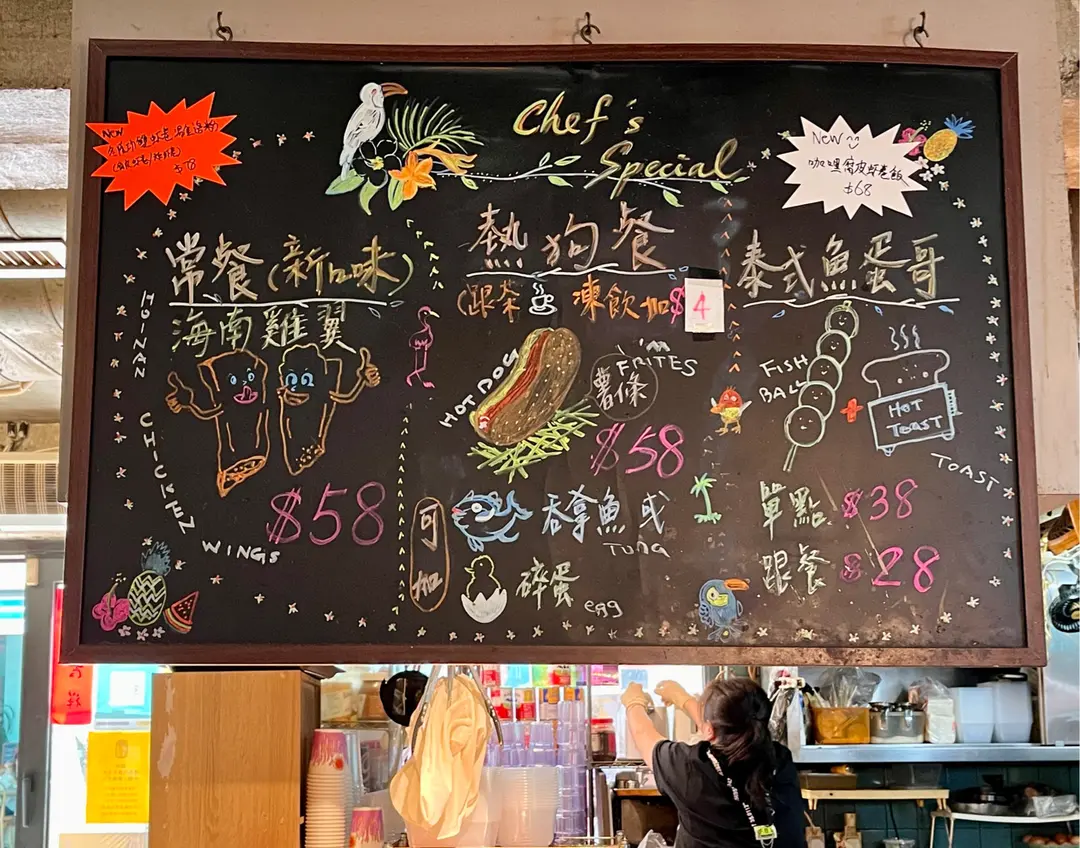 Chef's
Special
New
$78
New
咖哩腐皮蝦卷飯
$68
常餐(新口味)
海南雞翼
HAINAN
CHICKEN
WINGS
$58
熱狗餐
(跟茶 凍飲加$4
HOTDOG
I'm
FRITES
薯條
$58
可加
吞拿魚或
Tuna
碎蛋
egg
泰式魚蛋哥
FISH
BALL
HOT
TOAST
TOAST
單點 $38
跟餐 $28